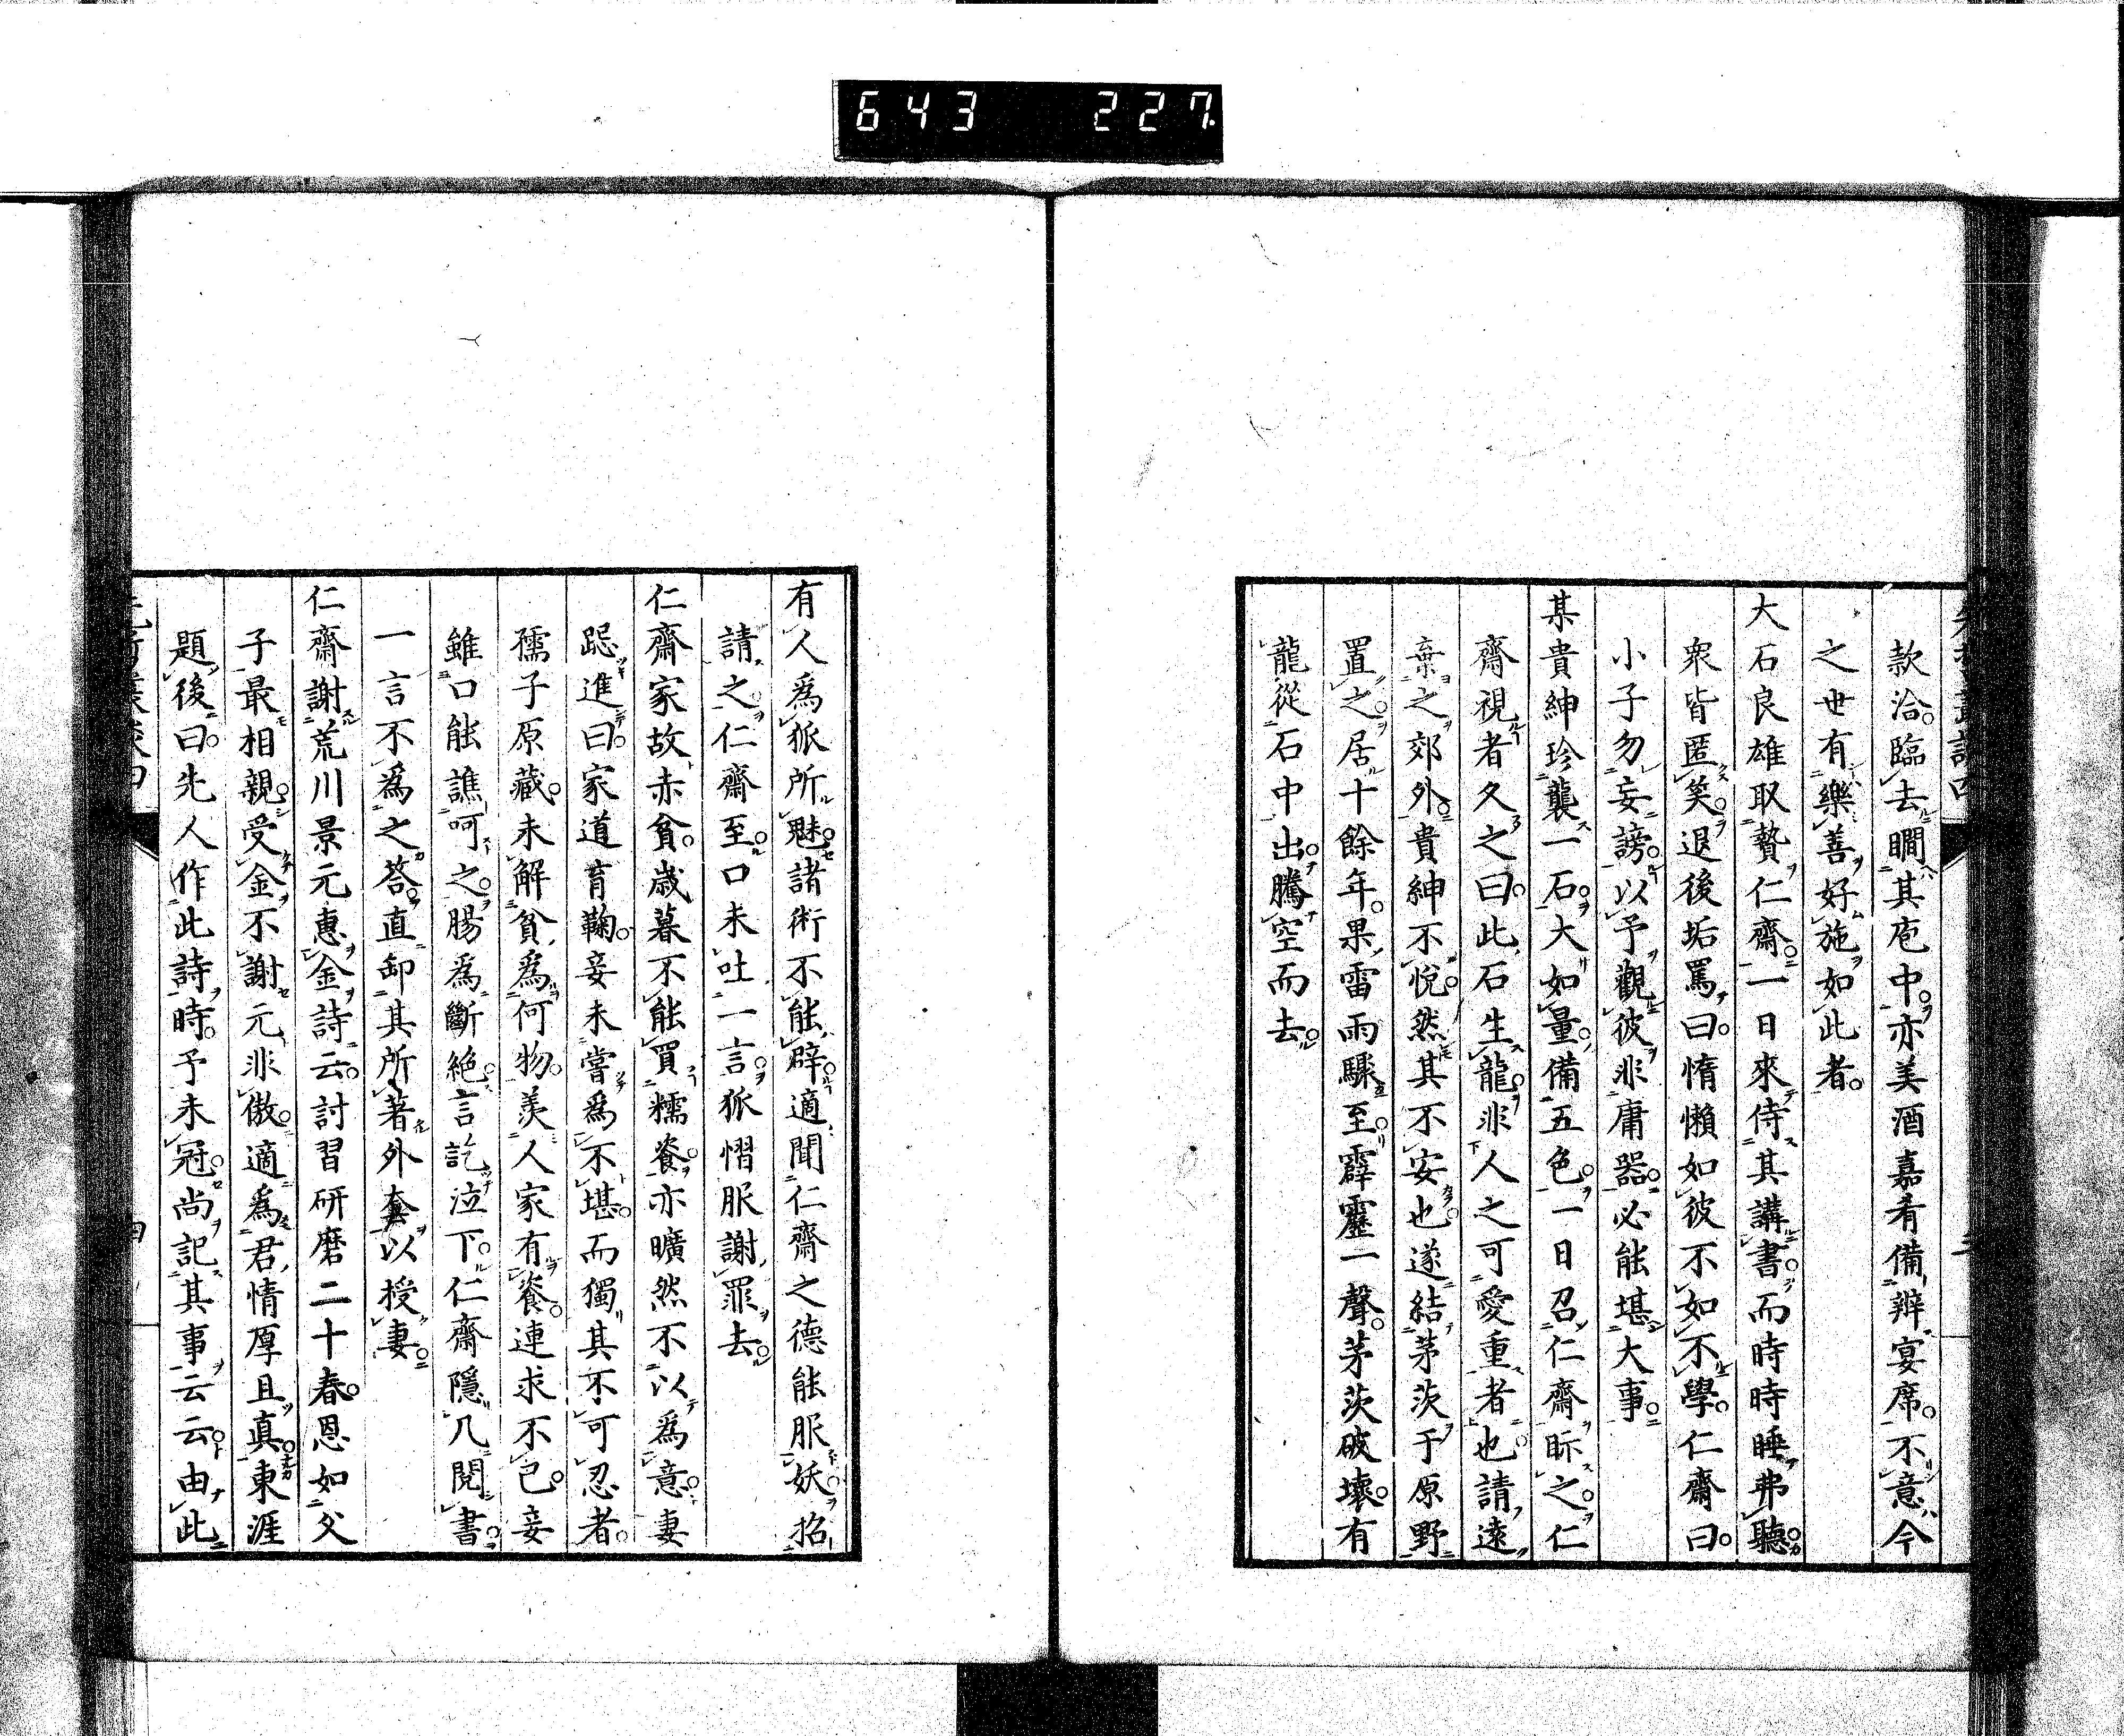 643 227
款洽臨去瞯其庖中亦美酒嘉肴備辨宴席不意今
之世有樂善好施如此者
大石良雄取贄仁齋一日來侍其講書而時時睡弗聽
衆皆匿笑退後垢罵曰惰懶如彼不如不學仁齋曰
小子勿妄謗以予觀彼非庸器必能堪大事
某貴紳珍襲一石大如量備五色一日召仁齋眎之仁
齋視者久之曰此石生龍非人之可愛重者也請遠
棄之郊外貴紳不悅然其不安也遂結茅茨于原野
置之居十餘年果雷雨驟至霹靂一聲茅茨破壞有
龍從石中出騰空而去
有人爲狐所魅諸術不能辟適聞仁齋之德能服妖招
請之仁齋至口未吐一言狐慴服謝罪去
仁齋家故赤貧歲暮不能買糯餈亦曠然不以爲意妻
跽進曰家道育鞠妾未嘗爲不堪而獨其不可忍者
孺子原藏未解貧爲何物羨人家有餈連求不已妾
雖口能譙呵之腸爲斷絕言訖泣下仁齋隱几閱書
一言不爲之荅直卸其所著外套以授妻
仁齋謝荒川景元惠金詩云討習研磨二十春恩如父
子最相親受金不謝元非傲適爲君情厚且真東涯
題後曰先人作此詩時予未冠尚記其事云云由此